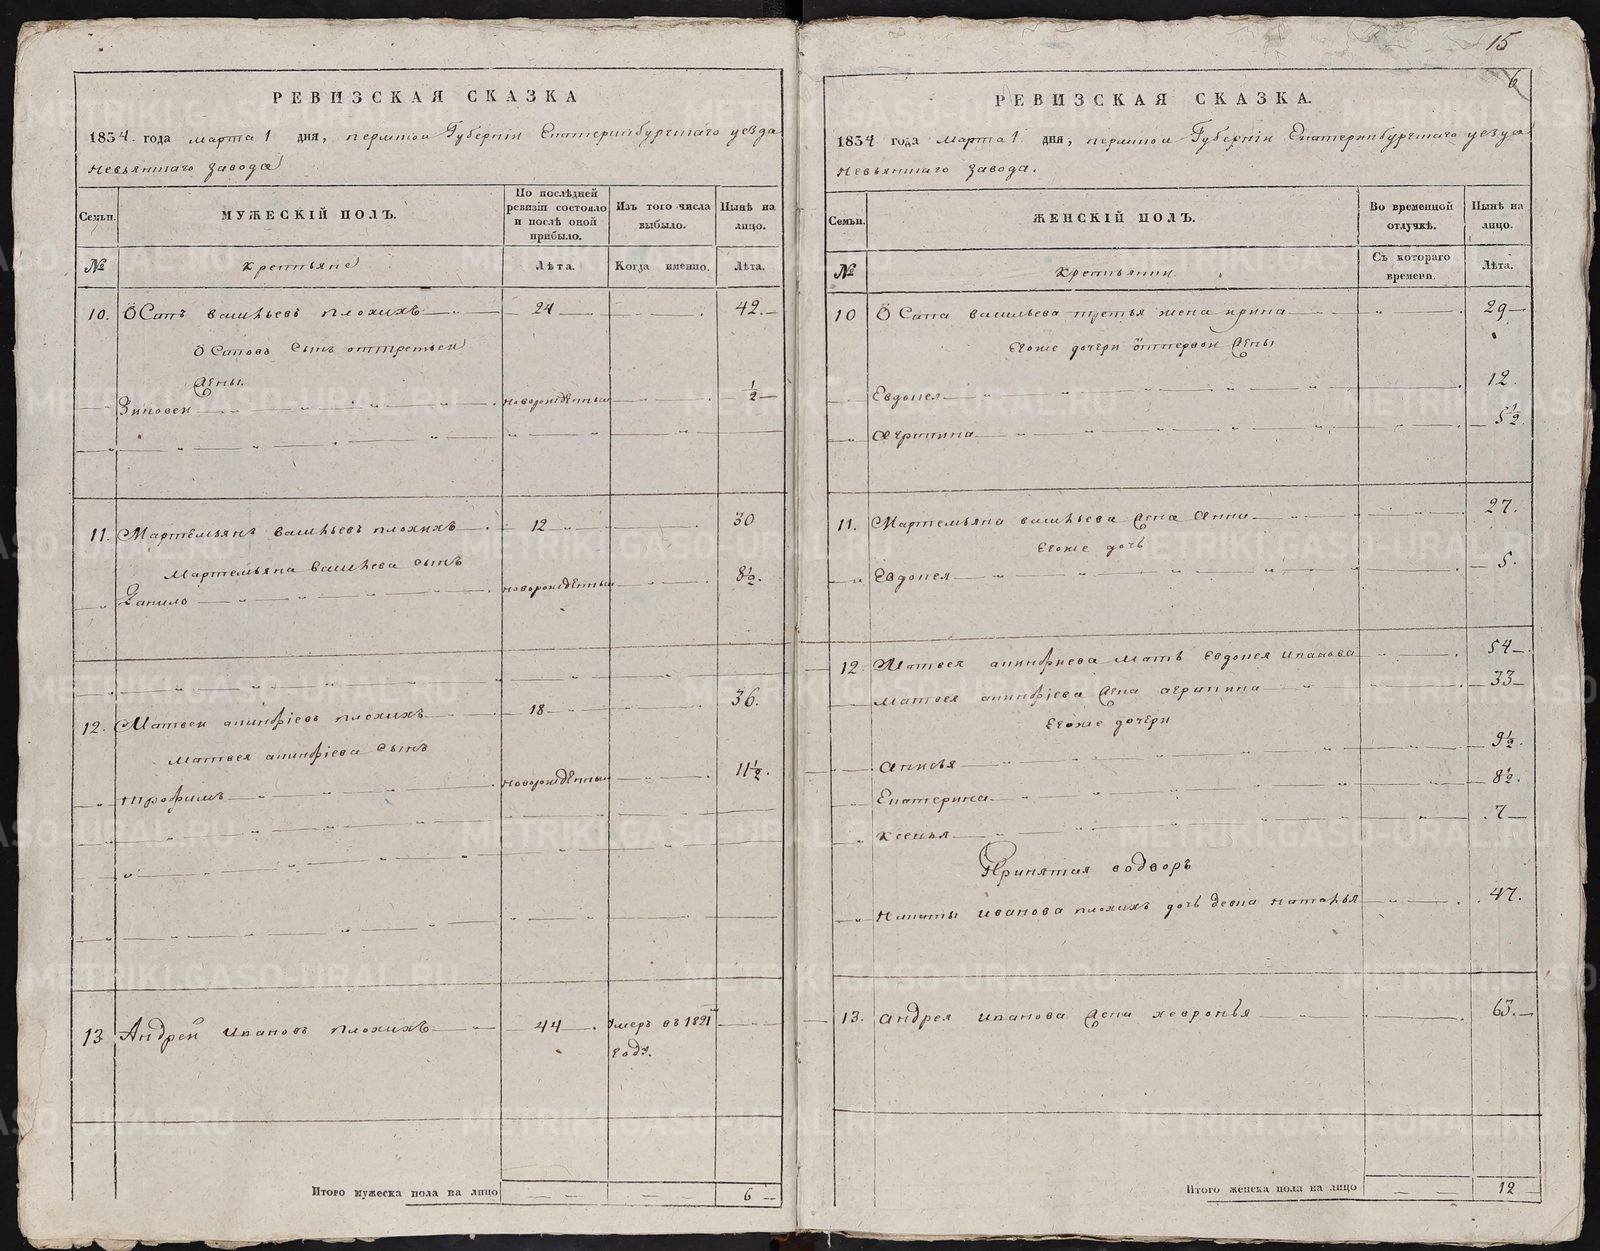 РЕВИЗСКАЯ СКАЗКА
1834. года марта 1 дня, пермской Губерніи Екатеринбургскаго уезда
Невьянскаго завода
Семьи.
МУЖЕСКІЙ ПОЛЪ.
По послѣдней ревизіи состояло и послѣ оной прибыло.
Изъ того числа выбыло.
Нынѣ на лицо.
№
крестьяне
Лѣта.
Когда именно.
Лѣта.
10. Осипъ васильевъ плохихъ 24 42.
Осиповъ сынъ оттретьей
жены
Зиновей новорожденный ½
11. Мартемьянъ васильевъ плохихъ 12 30
Мартемьяна васильева сынъ
Данило новорожденный 8½.
12. Матвей аникфіевъ плохихъ 18 36.
Матвея анинфіева сынъ
трофимъ новорожденный 11½.
13 Андрей ивановъ плохихъ 44 умеръ в 1821
году.
Итого мужеска пола на лицо 6
15
6
РЕВИЗСКАЯ СКАЗКА.
1834 года марта 1 дня, пермской Губерніи Екатеринбургскаго уезда
Невьянскаго завода.
Семьи.
ЖЕНСКІЙ ПОЛЪ.
Во временной отлучкѣ.
Нынѣ на лицо.
№
крестьянки.
Съ котораго времени.
Лѣта.
10 Осипа васильева третья жена ирина 29
Егоже дочери отпервой жены
Евдокея 12.
агрипина 5½
11. Мартемьяна васильева жена анна 27.
Егоже дочь
Евдокея 5.
12 Матвея анинфиева мать Евдокея иванова 54
матвея анинфіева жена агрипина 33
Егоже дочери
анисья 9½.
Екатерина 8½.
ксенья 7
Принятая водворъ
Никиты иванова плохихъ дочь девка наталья 47.
13. андрея иванова жена хевронья 63.
Итого женска пола на лицо 12
METRIKI.GASO-URAL.RU